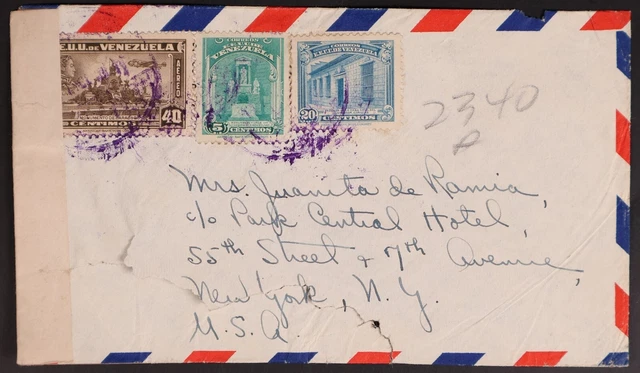 E.U.U. DE VENEZUELA
AEREO
40
CENTIMOS
CORREOS
E.E.U.U. DE
VENEZUELA
5 CENTIMOS
CORREOS
E.E.U.U. DE VENEZUELA
20 CENTIMOS
2340
A
Mrs. Juanita de Ramia,
c/o Park Central Hotel,
55th Street & 7th Avenue,
New York, N.Y.
U.S.A.